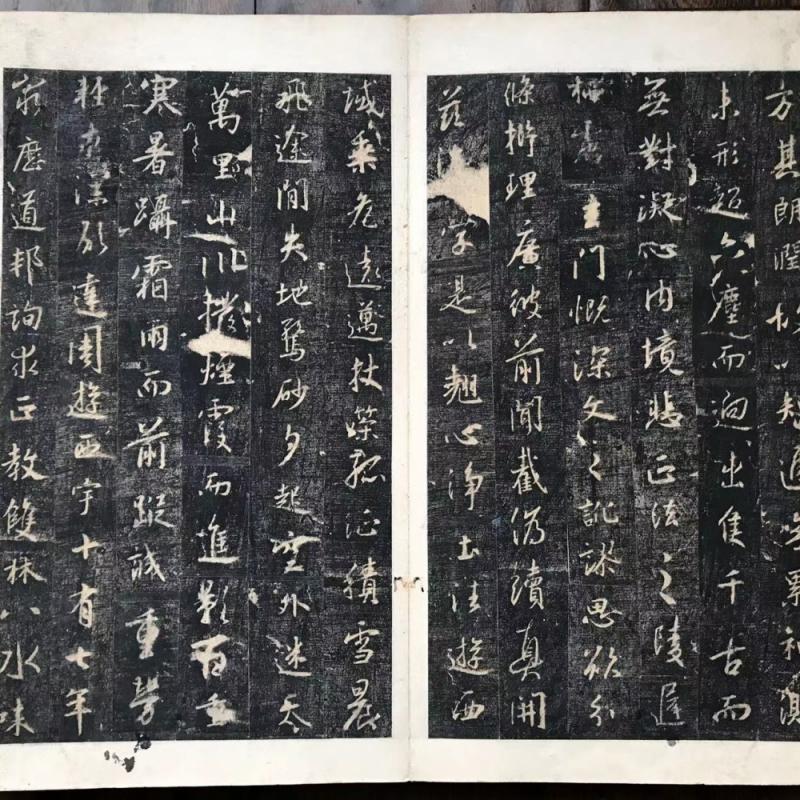 方其朗潤故以智通無累神測
未形超六塵而迥出隻千古而
無對凝心內境悲正法之陵遲
栖慮門慨深文之訛謬思欲分
條析理廣彼前聞截偽續真開
茲學是以翹心淨土法遊西
域乘危遠邁杖策孤征積雪晨
飛途間失地驚砂夕起空外迷天
萬里山川撥煙霞而進影百重
寒暑躡霜雨而前蹤誠重勞
輕求深願達周遊西宇十有七年
窮歷道邦詢求正教雙林八水味